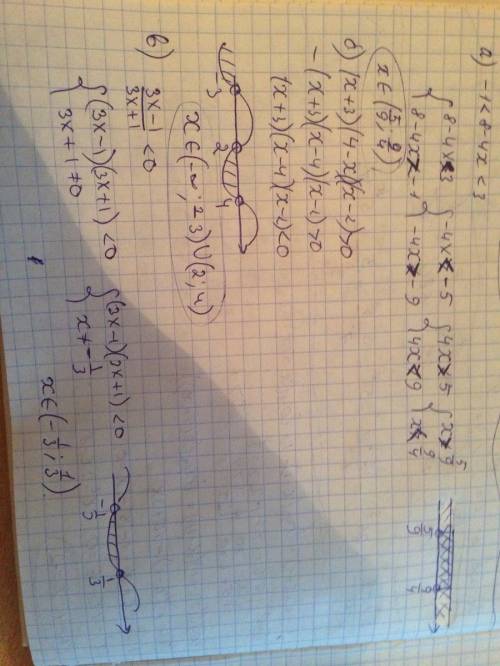 а) -1 < 8-4x < 3
{ 8-4x < 3 { -4x < -5 { 4x > 5 { x > 5/9
{ 8-4x > -1 { -4x > -9 { 4x < 9 { x < 9/4
5/9 9/4
x ∈ (5/9; 9/4)
б) (x+3)(4-x)(x-2) > 0
-(x+3)(x-4)(x-2) > 0
(x+3)(x-4)(x-2) < 0
-3 2 4
x ∈ (-∞; -3) ∪ (2; 4)
в) 3x-1/3x+1 < 0
{ (3x-1)(3x+1) < 0 { (3x-1)(3x+1) < 0
{ 3x+1 ≠ 0 { x ≠ -1/3
-1/3 1/3
x ∈ (-1/3; 1/3)